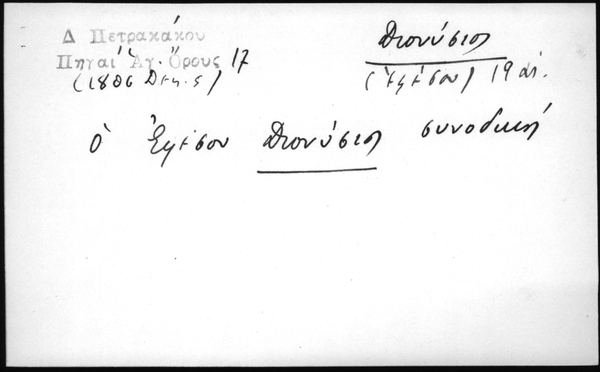 Δ Πετρακάκου
Πηγαί Ἁγ. Ὄρους 17
(1806 Δεκ. 5)
Διονύσιος
(Ἐφέσου) 19 αἰ.
ὁ Ἐφέσου Διονύσιος συνοδική